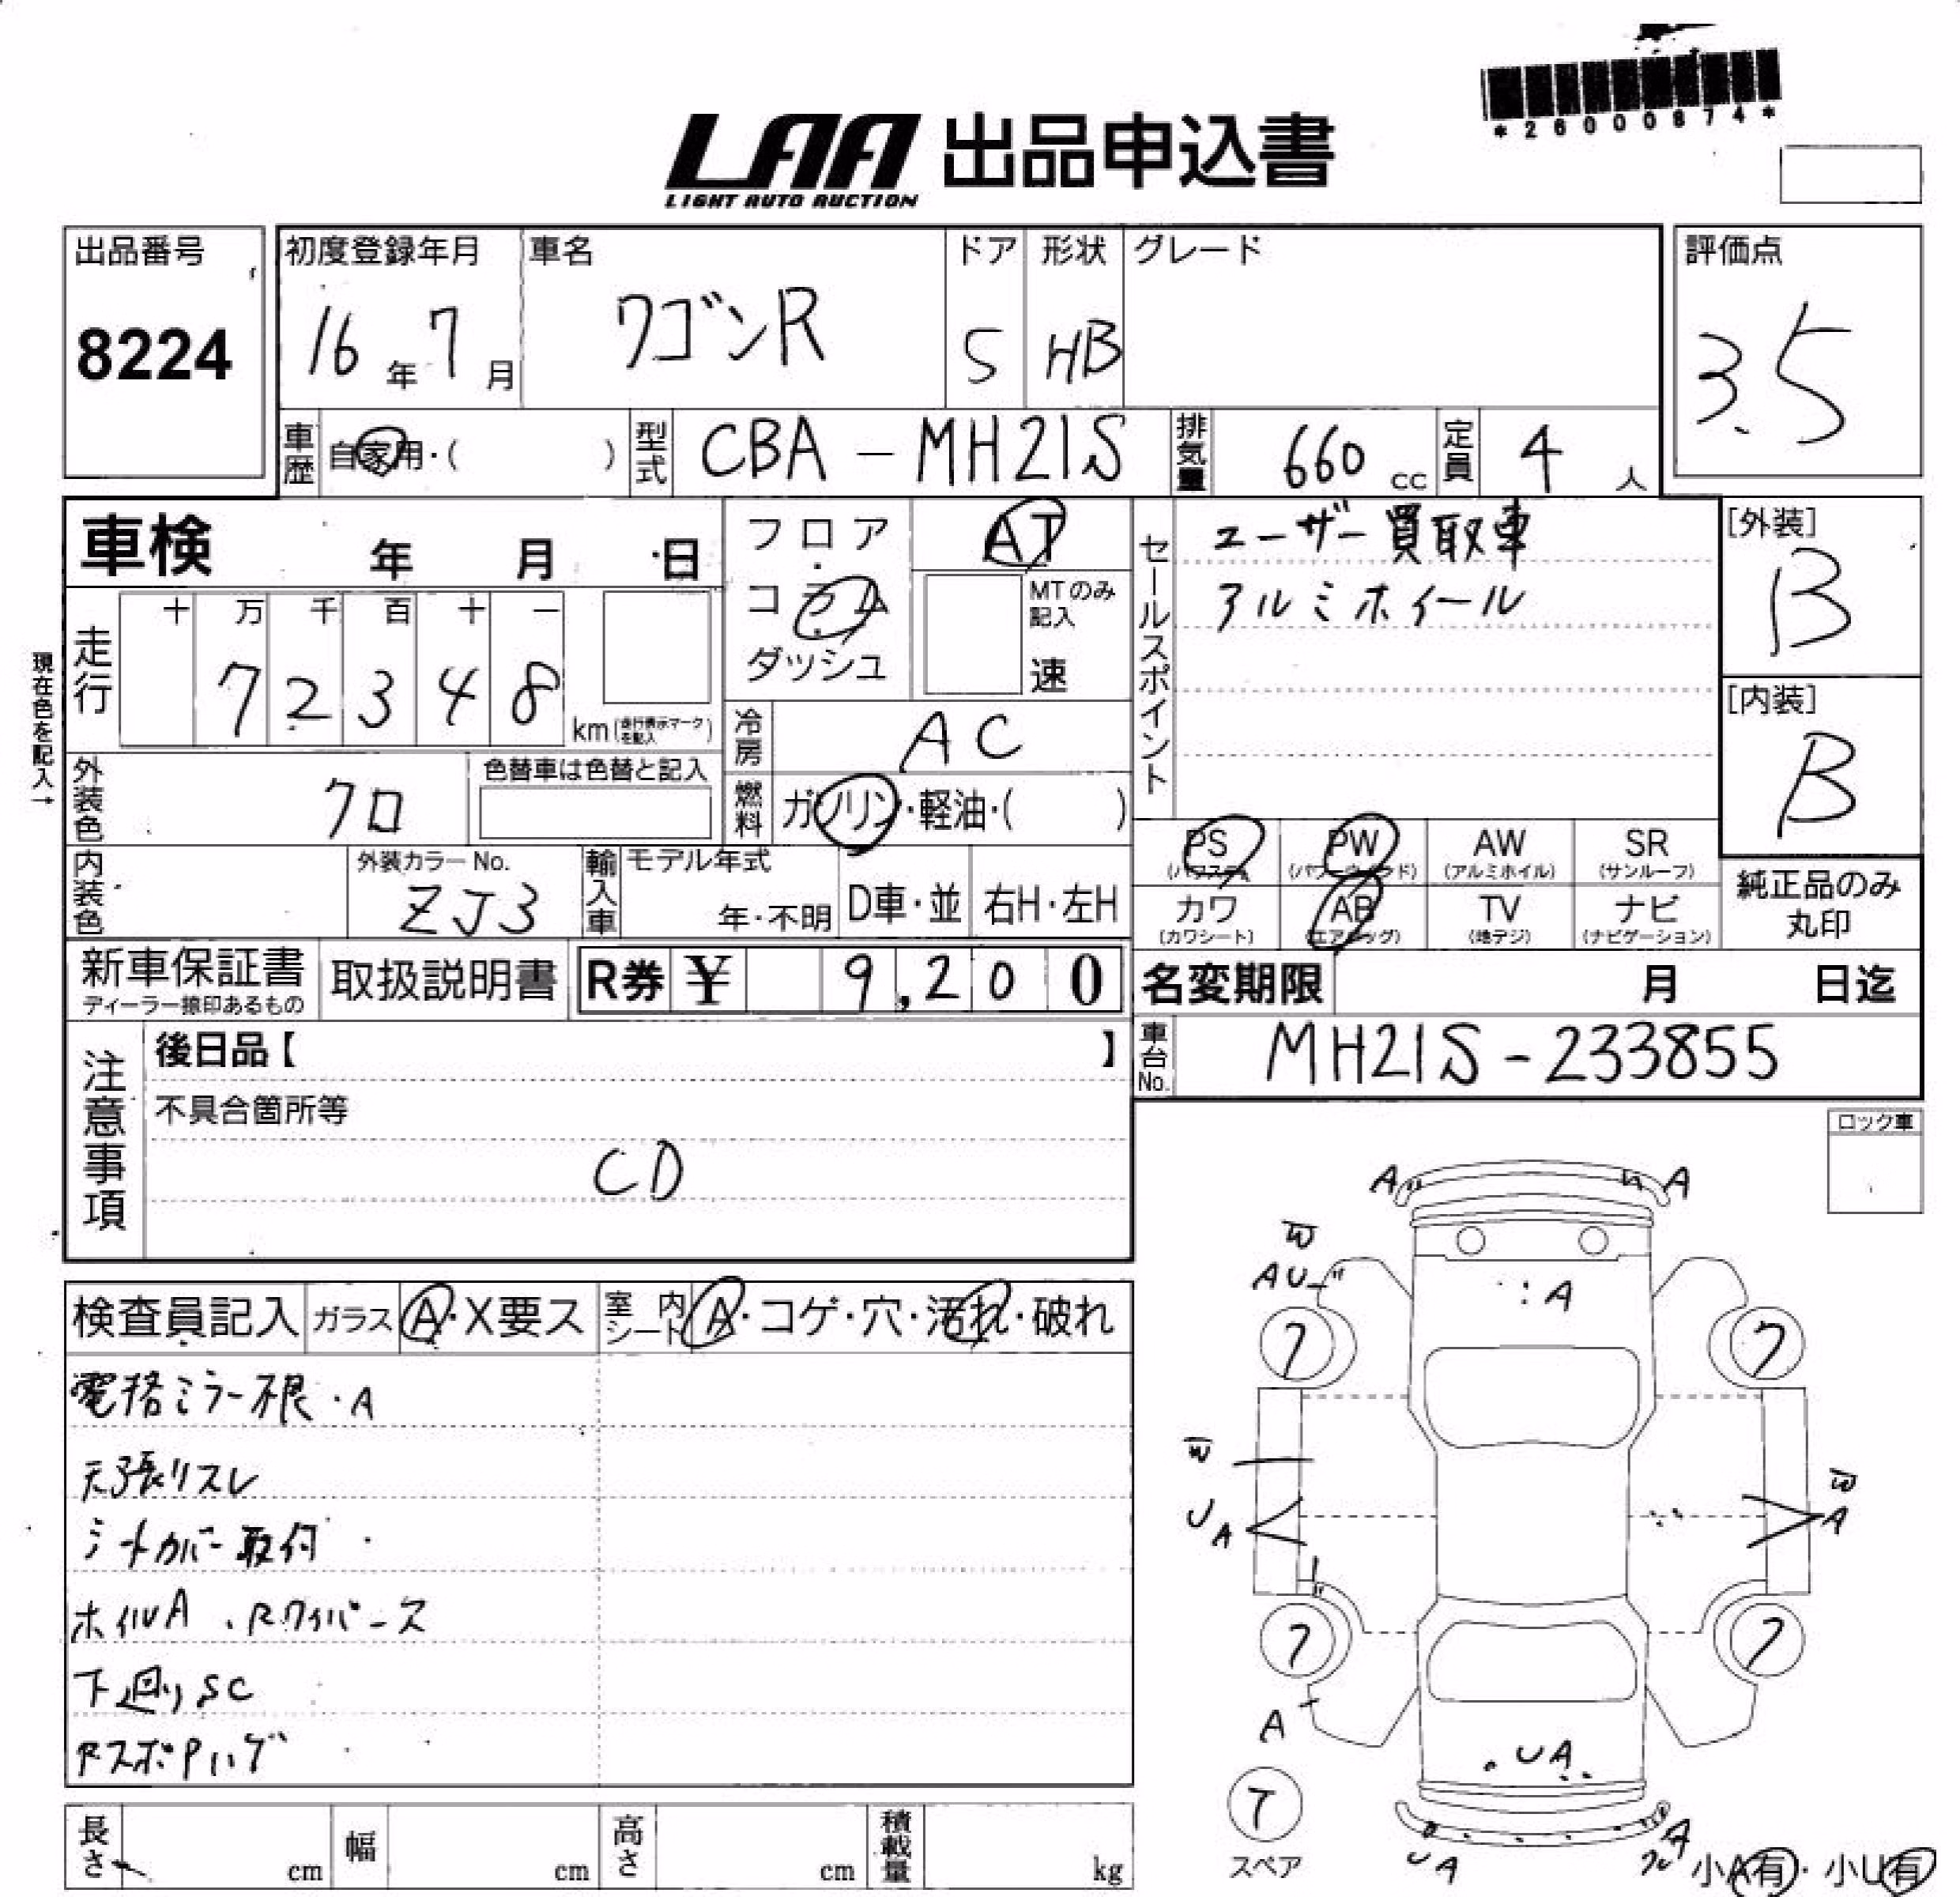 *26000874*
LAA 出品申込書
LIGHT AUTO AUCTION
出品番号
8224
初度登録年月
16年7月
車名
ワゴンR
ドア
5
形状
HB
グレード
評価点
3.5
車歴 自家用・( )
型式 CBA-MH21S
排気量 660cc
定員 4人
車検 年 月 日
フロア・コラム・ダッシュ
AT
MTのみ記入
速
セールスポイント
ユーザー買取車
アルミホイール
[外装]
B
[内装]
B
現在色を記入→
走行
十 万 千 百 十 一
7 2 3 4 8
km(走行表示マークを記入)
冷房 AC
燃料 ガソリン・軽油・( )
外装色 クロ
色替車は色替と記入
内装色
外装カラーNo.
ZJ3
輸入車
モデル年式
年・不明
D車・並
右H・左H
PS (パワステ)
PW (パワーウインド)
AW (アルミホイル)
SR (サンルーフ)
カワ (カワシート)
AB (エアバッグ)
TV (地デジ)
ナビ (ナビゲーション)
純正品のみ丸印
新車保証書
ディーラー捺印あるもの
取扱説明書
R券 ¥ 9,200
名変期限 月 日迄
車台No. MH21S-233855
注意事項
後日品【 】
不具合箇所等
CD
ロック車
検査員記入
ガラス A・X要ス
室内シート A・コゲ・穴・汚れ・破れ
電格ミラー不良・A
天張リスレ
シートカバー取付
ホイルA、Rワイパース
下廻りSC
RスポPハゲ
A
A
W
AU
A
7
7
W
W
U
A
A
7
7
A
UA
T
スペア
UA
A
小A有・小U有
長さ cm
幅 cm
高さ cm
積載量 kg